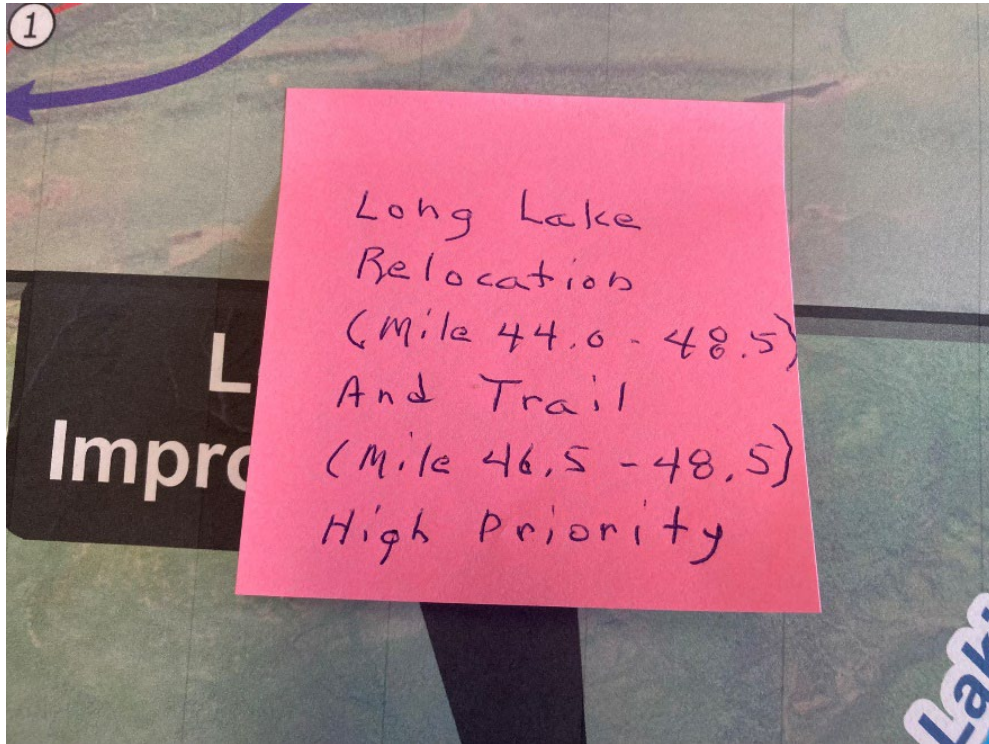 1
Long Lake
Relocation
(Mile 44.0 - 48.5)
And Trail
(Mile 46.5 - 48.5)
High Priority
L
Impro
Lak